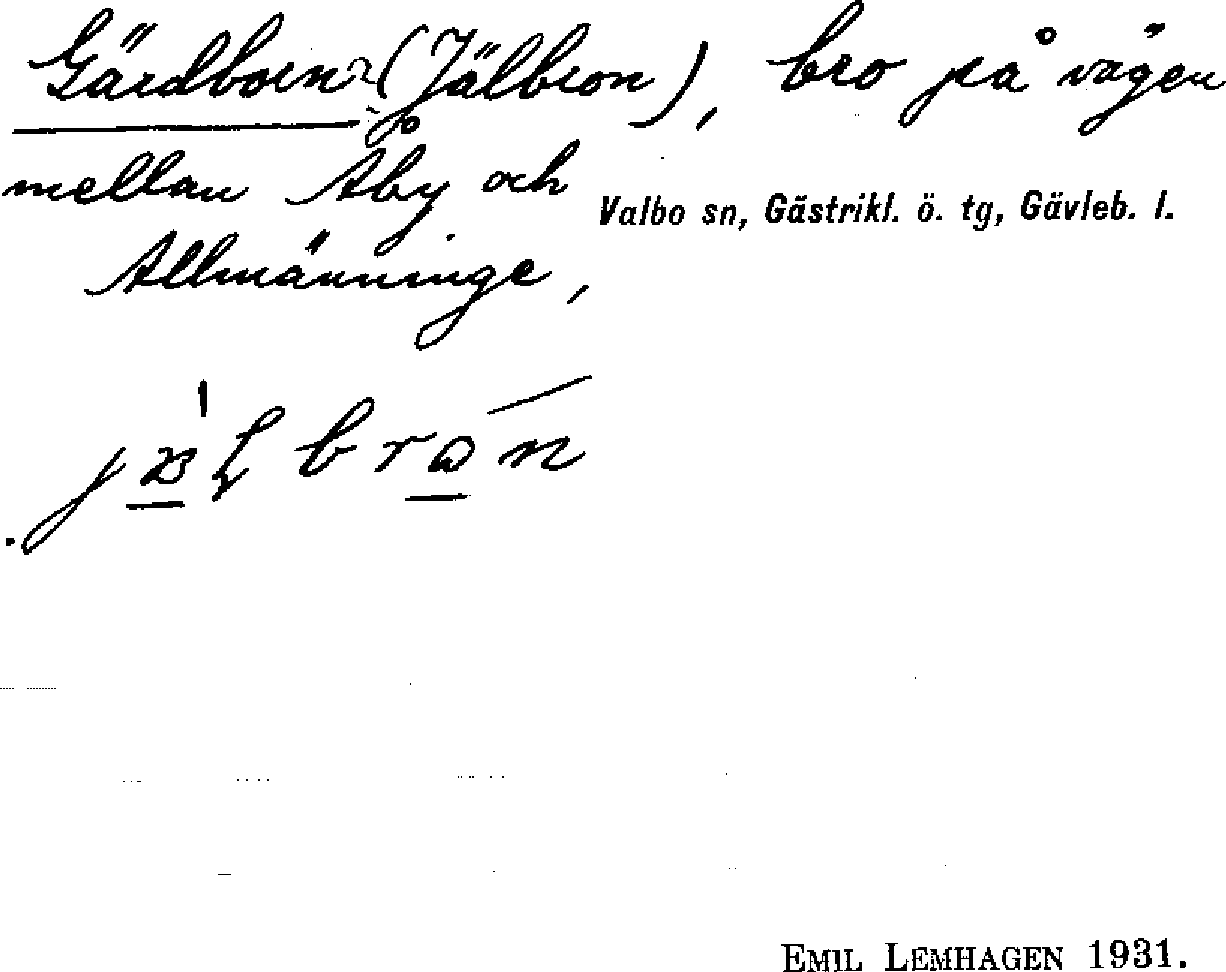 Gärdborn (Jälbron), bro på vägen
mellan Åby och
Valbo sn, Gästrikl. ö. tg, Gävleb. l.
Allmänninge,
EMIL LEMHAGEN 1931.